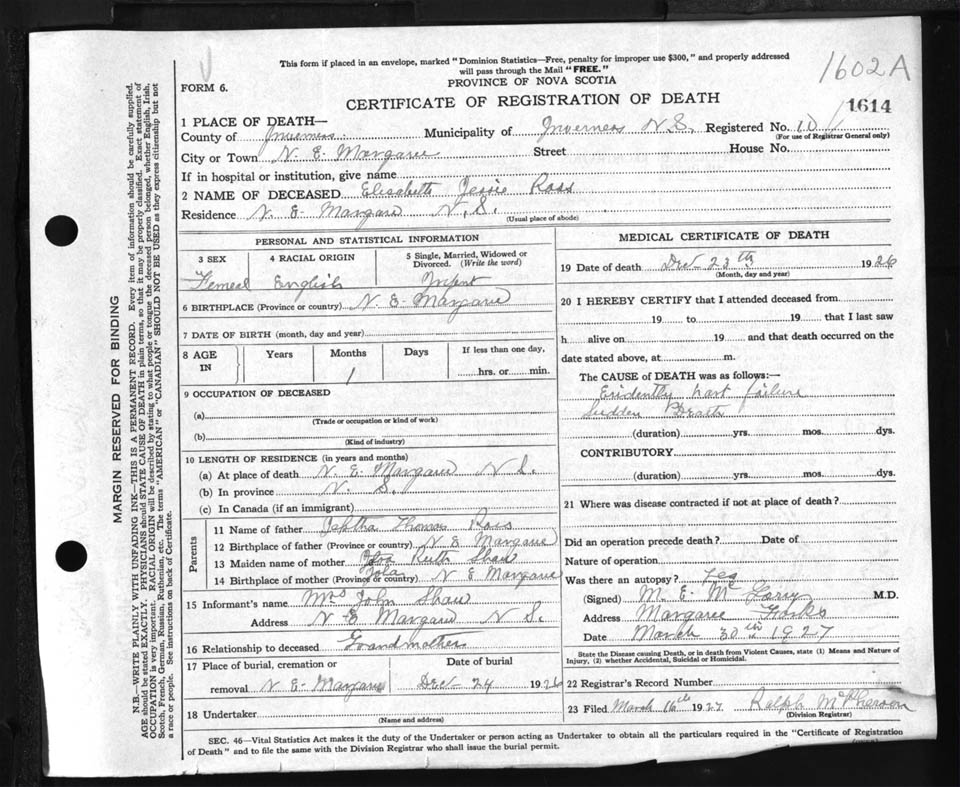 This form if placed in an envelope, marked "Dominion Statistics—Free, penalty for improper use $300," and properly addressed
will pass through the Mail "FREE."
1602A
FORM 6.
PROVINCE OF NOVA SCOTIA
CERTIFICATE OF REGISTRATION OF DEATH
1614
1 PLACE OF DEATH—
County of Inverness Municipality of Inverness N.S. Registered No.
(For use of Registrar General only)
City or Town N. E. Margaree Street House No.
If in hospital or institution, give name
2 NAME OF DECEASED Elisabeth Jessie Ross
Residence N. E. Margaree N.S.
(Usual place of abode)
PERSONAL AND STATISTICAL INFORMATION
3 SEX 4 RACIAL ORIGIN 5 Single, Married, Widowed or Divorced. (Write the word)
Femeal English Infant
6 BIRTHPLACE (Province or country) N. E. Margaree
7 DATE OF BIRTH (month, day and year)
8 AGE IN Years Months Days If less than one day,
1 hrs. or min.
9 OCCUPATION OF DECEASED
(a)
(Trade or occupation or kind of work)
(b)
(Kind of industry)
10 LENGTH OF RESIDENCE (in years and months)
(a) At place of death N. E. Margaree N.S.
(b) In province N. S.
(c) In Canada (if an immigrant)
Parents
11 Name of father Thomas Ross
12 Birthplace of father (Province or country) N E Margaree
13 Maiden name of mother Ruth Shaw
Iola
14 Birthplace of mother (Province or country) N E Margaree
15 Informant's name Mrs John Shaw
Address N E Margaree N S.
16 Relationship to deceased Grandmother
17 Place of burial, cremation or removal N. E. Margaree Date of burial Dec 24 1926
18 Undertaker
(Name and address)
MEDICAL CERTIFICATE OF DEATH
19 Date of death Dec 23th 1926
(Month, day and year)
20 I HEREBY CERTIFY that I attended deceased from
19 to 19 that I last saw
h alive on 19 and that death occurred on the
date stated above, at m.
The CAUSE of DEATH was as follows:—
Evidently hart failure
sudden Death
(duration) yrs. mos. dys.
CONTRIBUTORY
(duration) yrs. mos. dys.
21 Where was disease contracted if not at place of death?
Did an operation precede death? Date of
Nature of operation
Was there an autopsy? Yes
(Signed) M. E. McGarry M.D.
Address Margaree Forks
Date March 30th 1927
State the Disease causing Death, or in death from Violent Causes, state (1) Means and Nature of
Injury, (2) whether Accidental, Suicidal or Homicidal.
22 Registrar's Record Number
23 Filed March 16th 1927 Ralph McPherson
(Division Registrar)
SEC. 46—Vital Statistics Act makes it duty of the Undertaker or person acting as Undertaker to obtain all the particulars required in the "Certificate of Registration
of Death" and to file the same with the Division Registrar who shall issue the burial permit.
MARGIN RESERVED FOR BINDING
N.B.—WRITE PLAINLY WITH UNFADING INK—THIS IS A PERMANENT RECORD. Every item of information should be carefully supplied.
AGE should be stated EXACTLY. PHYSICIANS should STATE CAUSE OF DEATH in plain terms, so that it may be properly classified. Exact statement of
OCCUPATION is very important. RACIAL ORIGIN will be described by stating to what people or tongue the deceased person belonged, whether English, Irish,
Scotch, French, German, Russian, Ruthenian, etc. The terms "AMERICAN" or "CANADIAN" SHOULD NOT BE USED as they express citizenship but not
a race or people. See instructions on back of Certificate.